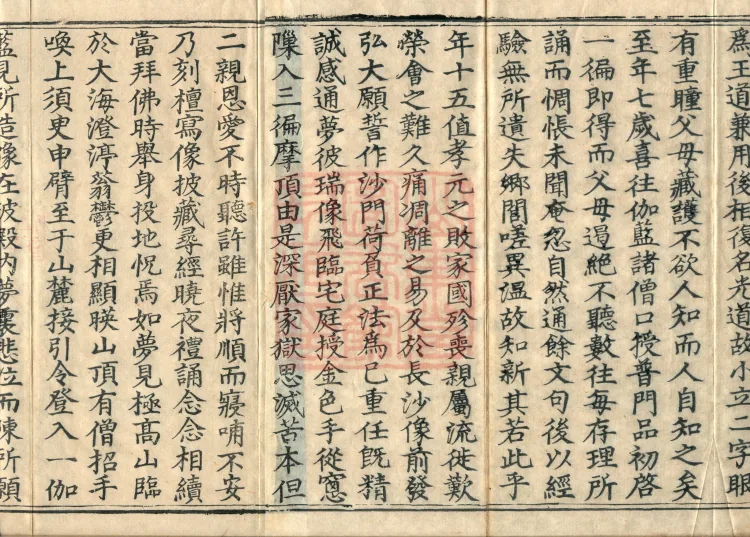 爲王道兼用後相復名光道故小立二字眼
有重瞳父母藏護不欲人知而人自知之矣
至年七歲喜往伽藍諸僧口授普門品初啓
一徧即得而父母遏絶不聽數往每存理所
誦而惆悵未聞奄忽自然通餘文句後以經
驗無所遺失鄉閭嗟異温故知新其若此乎
年十五值孝元之敗家國殄喪親屬流徙歎
榮會之難久痛凋離之易及於長沙像前發
弘大願誓作沙門荷負正法爲己重任旣精
誠感通夢彼瑞像飛臨宅庭授金色手從窻
隟入三徧摩頂由是深厭家獄思滅苦本但
二親恩愛不時聽許雖惟將順而寢哺不安
乃刻檀寫像披藏尋經曉夜禮誦念念相續
當拜佛時舉身投地怳焉如夢見極高山臨
於大海澄渟蓊鬱更相顯暎山頂有僧招手
喚上須臾申臂至于山麓接引令登入一伽
藍見所造像在彼殿内夢裏悲泣而陳所願